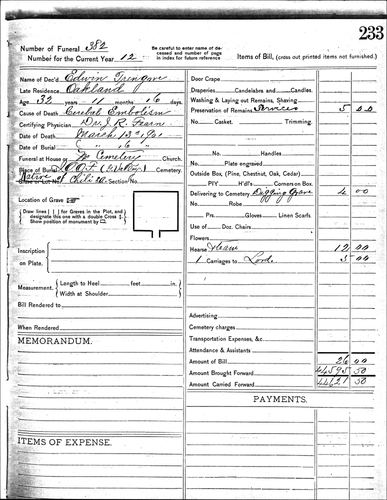 233
Number of Funeral 382
Number for the Current Year 12
Be careful to enter name of deceased and number of page in index for future reference
Items of Bill, (cross out printed items not furnished.)
Name of Dec'd Edwin
Late Residence Oakland
Age 32 years 11 months 16 days.
Cause of Death Embolism
Certifying Physician Dr J. R. Fearn
Date of Death March 13th 1901
Date of Burial " 16 "
Funeral at House or Cemetery Church.
Place of Burial I.O.O.F. Cemetery.
Grave or Lot No. Section No.
Native of Chili
Location of Grave
Draw lines ( | ) for Graves in the Plot, and designate this one with a double Cross
Show position of monument by
Inscription on Plate.
Measurement. Length to Heel feet in.
Width at Shoulder
Bill Rendered to
When Rendered
MEMORANDUM.
ITEMS OF EXPENSE.
Door Crape
Draperies Candelabra and Candles.
Washing & Laying out Remains, Shaving
Preservation of Remains Services 5 00
No. Casket. Trimming.
No. Handles
Plate engraved
Outside Box, (Pine, Chestnut, Oak, Cedar)
P'IY H'dl's Corners on Box.
Delivering to Cemetery Digging Grave 4 00
No. Robe
Prs. Gloves Linen Scarfs.
Use of Doz. Chairs
Flowers
Hearse Hearse 12 00
1 Carriages to Lord 5 00
Advertising
Cemetery charges
Transportation Expenses, &c.
Attendance & Assistants
Amount of Bill 26 00
Amount Brought Forward 4595 50
Amount Carried Forward 4621 50
PAYMENTS.